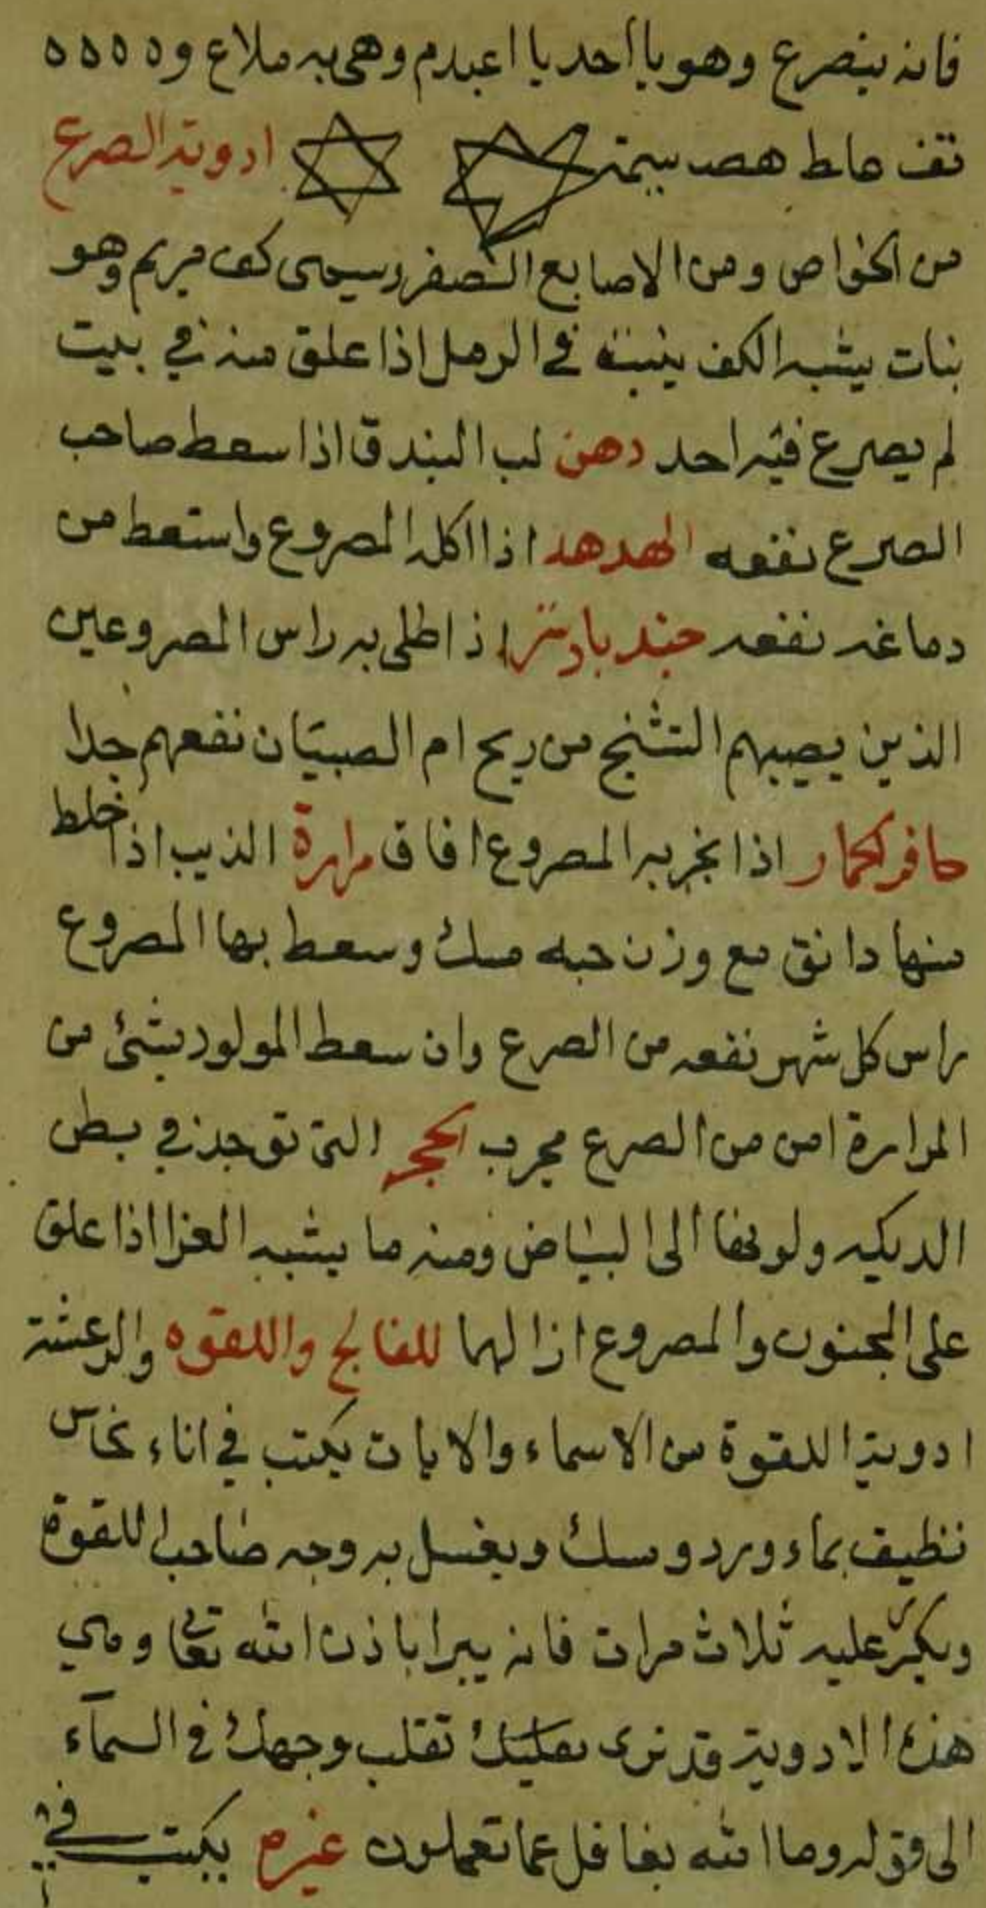 فانه ينصرع وهو يا احد يا اعبدم وهى به ملاع و ه ه ه ه ه
تقف هصد ادوية الصرع
من الخواص ومن الاصابع الصفر وسيمى كف مريم وهو
بنات يشبه الكف ينبته في الرمل اذا علق منه في بيت
لم يصرع فيه احد دهن لب البندق اذا سعط صاحب
الصرع نفعه الهدهد اذا اكله المصروع واستعط من
دماغه نفعه جند بادستر اذ اطلى به راس المصروعين
الذين يصيبهم التشنج من ريح ام الصبيان نفعهم جدا
حافر الحمار اذا بخر به المصروع افاق مرارة الذيب اذا خلط
منها دانق مع وزن حبه مسك وسعط بها المصروع
راس كل شهر نفعه من الصرع وان سعط المولود بشئ من
المرارة امن من الصرع مجرب الحجر التى توجد في بطن
الديكه ولونها الى البياض ومنه ما يشبه العزا اذا علق
على المجنون والمصروع ازالهما للفالج واللقوه والرعشة
ادوية اللقوة من الاسماء والايات يكتب في اناء نحاس
نظيف بماء ورد ومسك ويغسل به وجه صاحب اللقوة
ويكرر عليه ثلاث مرات فانه يبرا باذن الله تعا وهي
هذه الادوية قد نرى تقلب وجهك في السمآء
الى قوله وما الله بغافل عما تعملون غيره يكتب في